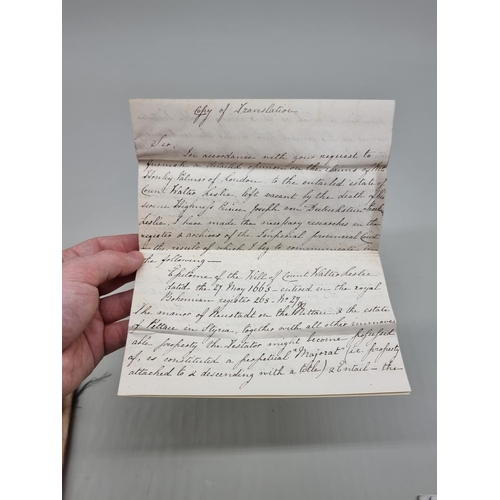 Copy of Translation
Sir,
In accordance with your request to
furnish a detailed opinion on the claims of Mr
Henry Palmer of London to the entailed estate of
Count Walter Leslie left vacant by the death of his
Serene Highness Prince Joseph von Dietrichstein
Leslie I have made the necessary researches in the
register & archives of the Imperial provincial Court
the result of which I beg to communicate
the following —
Epitome of the Will of Count Walter Leslie
dated the 27 May 1663 – entered in the royal
Bohemian register 263. No 27
The manor of Neustadt on the Mettau & the estate
of Pettau in Styria, together with all other immove
able property the Testator might become possessed
of, is constituted a perpetual "Majorat" (i.e. property
attached to & descending with a title) & Entail – the